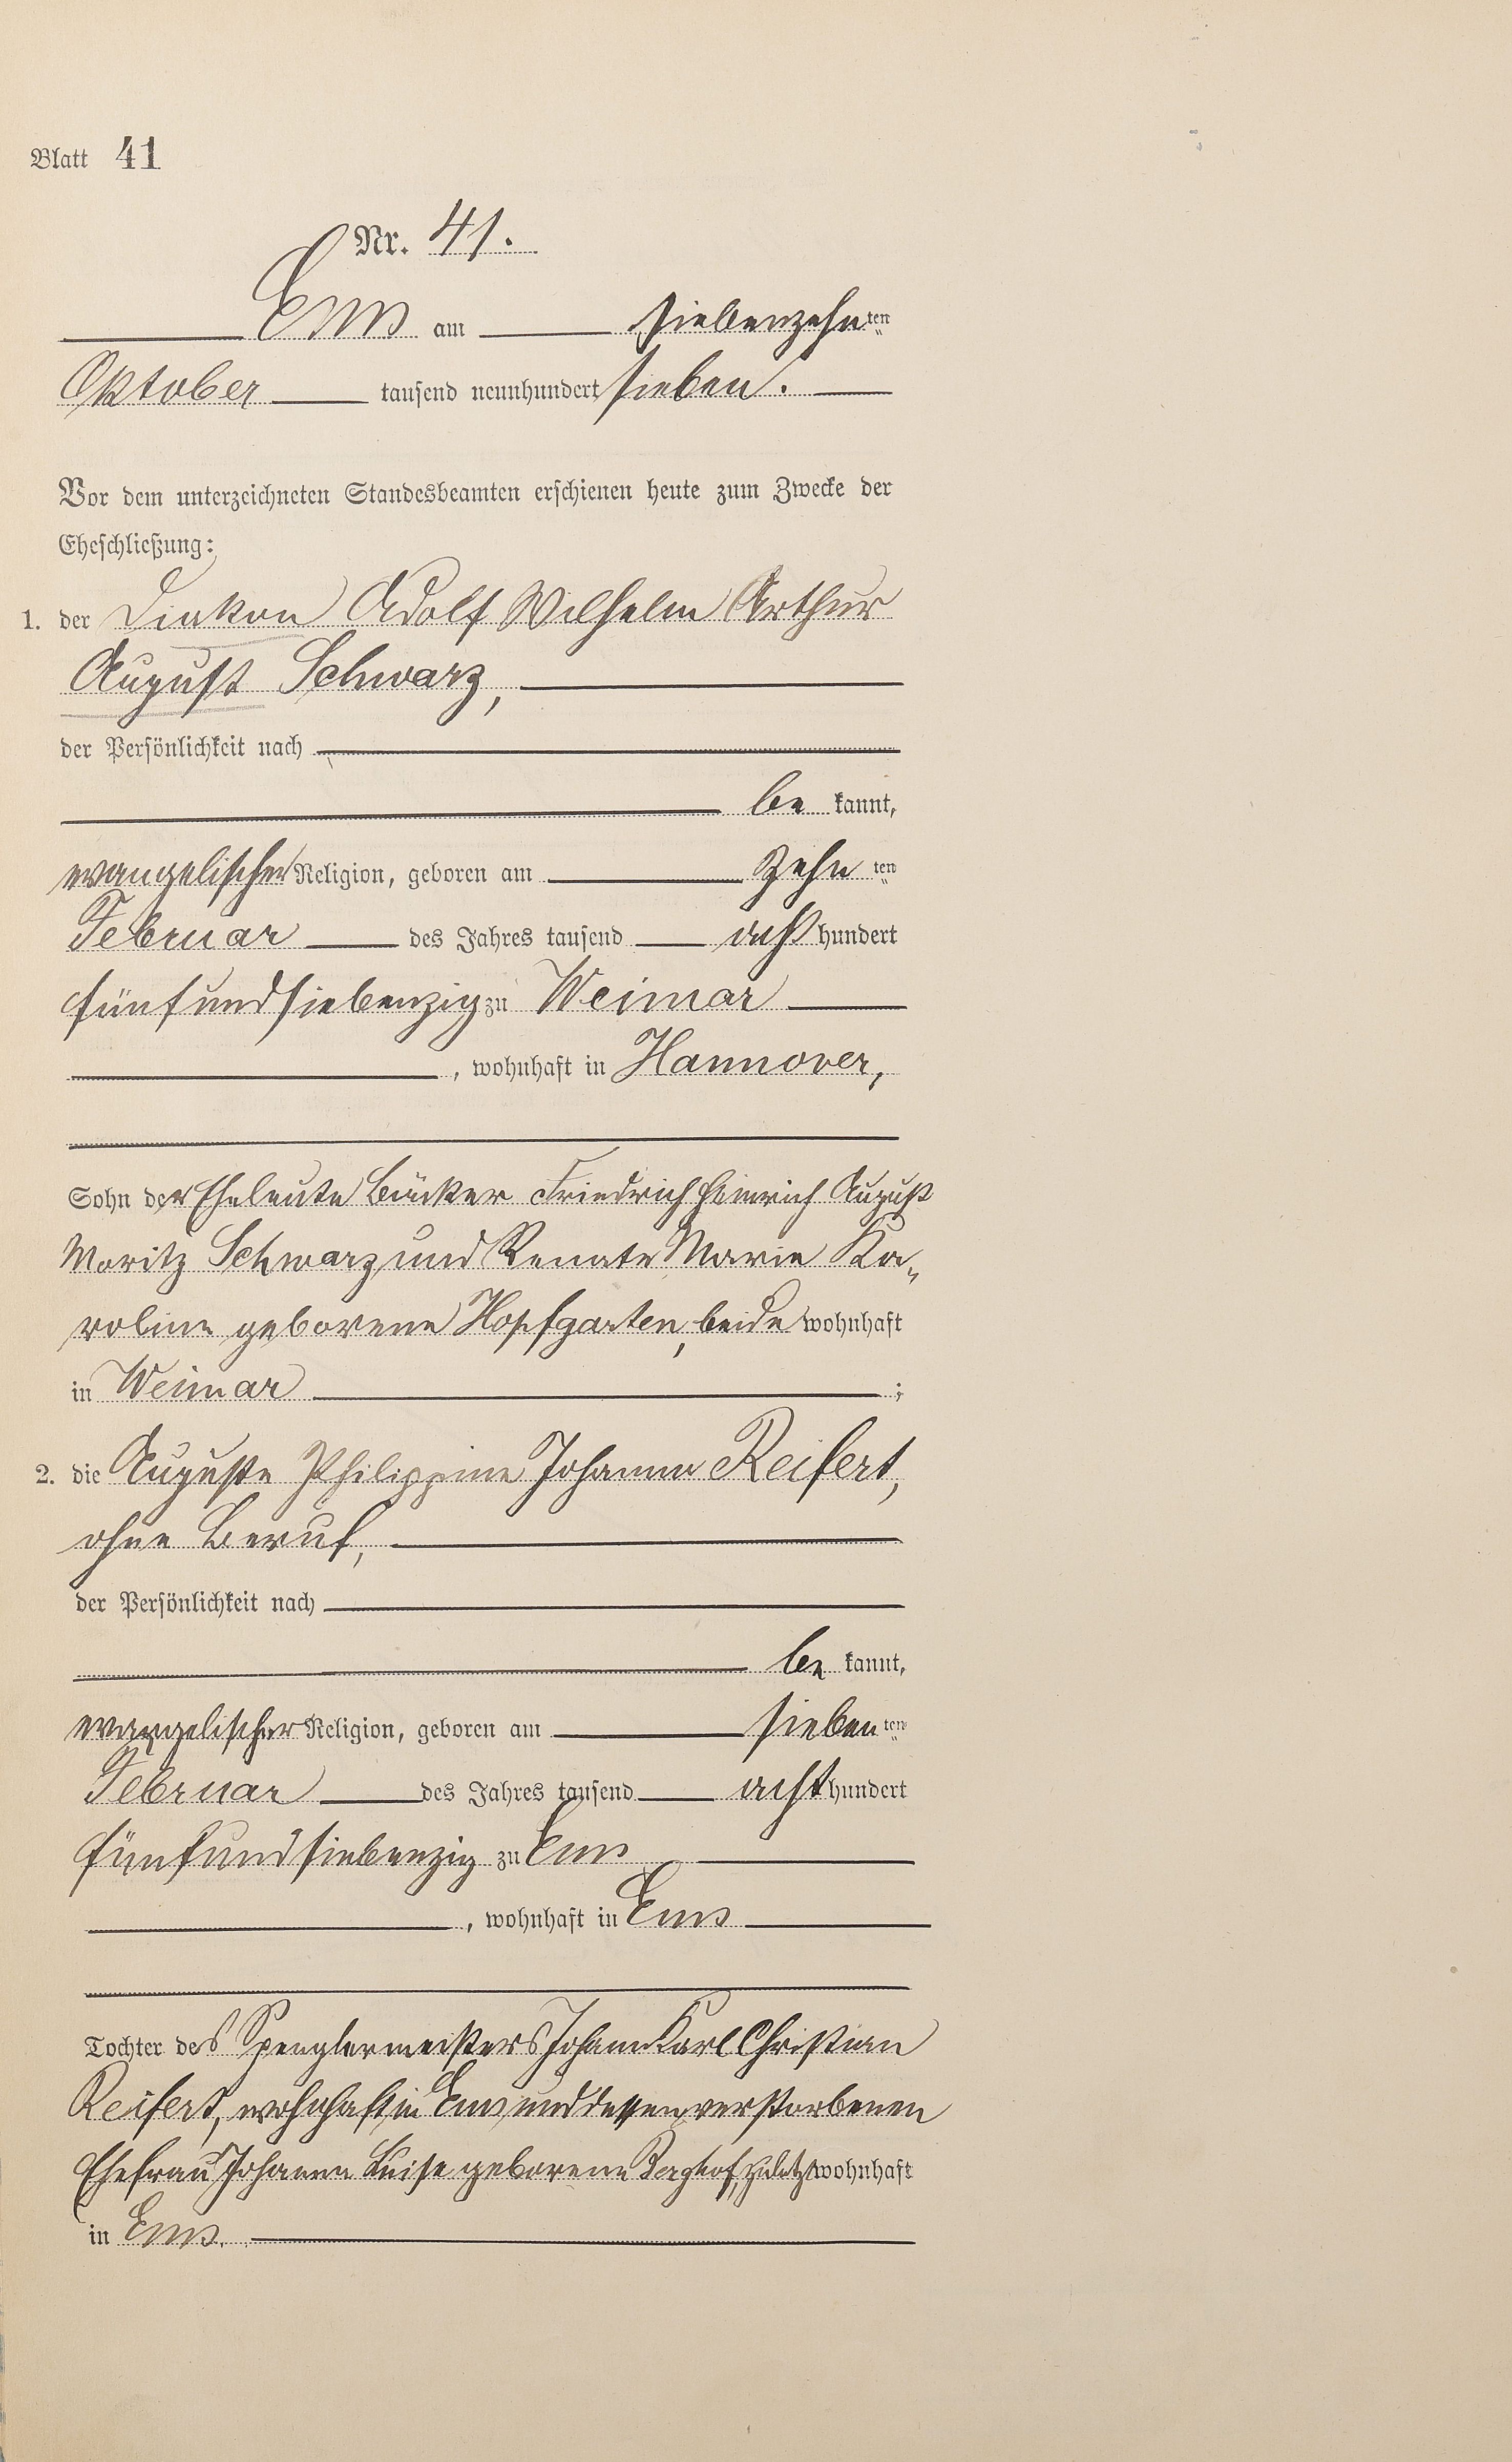 Blatt 41
Nr. 41.
Ems am siebenzehnten
Oktober tausend neunhundert sieben.
Vor dem unterzeichneten Standesbeamten erschienen heute zum Zwecke der
Eheschließung:
1. der Diakon Adolf Wilhelm Arthur
August Schwarz,
der Persönlichkeit nach
be kannt,
evangelischer Religion, geboren am zehn ten
Februar des Jahres tausend acht hundert
fünfundsiebenzig zu Weimar
, wohnhaft in Hannover,
Sohn der Eheleute Bäcker Friedrich Heinrich August
Moritz Schwarz und Renate Marie Ka-
roline geborene Hopfgarten, beide wohnhaft
in Weimar ;
2. die Auguste Philippine Johanna Reifert,
ohne Beruf,
der Persönlichkeit nach
be kannt,
evangelischer Religion, geboren am sieben ten
Februar des Jahres tausend acht hundert
fünfundsiebenzig zu Ems
, wohnhaft in Ems
Tochter des Spenglermeisters Johann Karl Christian
Reifert, wohnhaft in Ems und dessen verstorbenen
Ehefrau Johanna Luise geborene Berghof, zuletzt wohnhaft
in Ems.